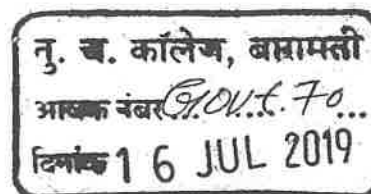 तु. च. कॉलेज, बारामती
आवक नंबर Govt. 70...
दिनांक 16 JUL 2019